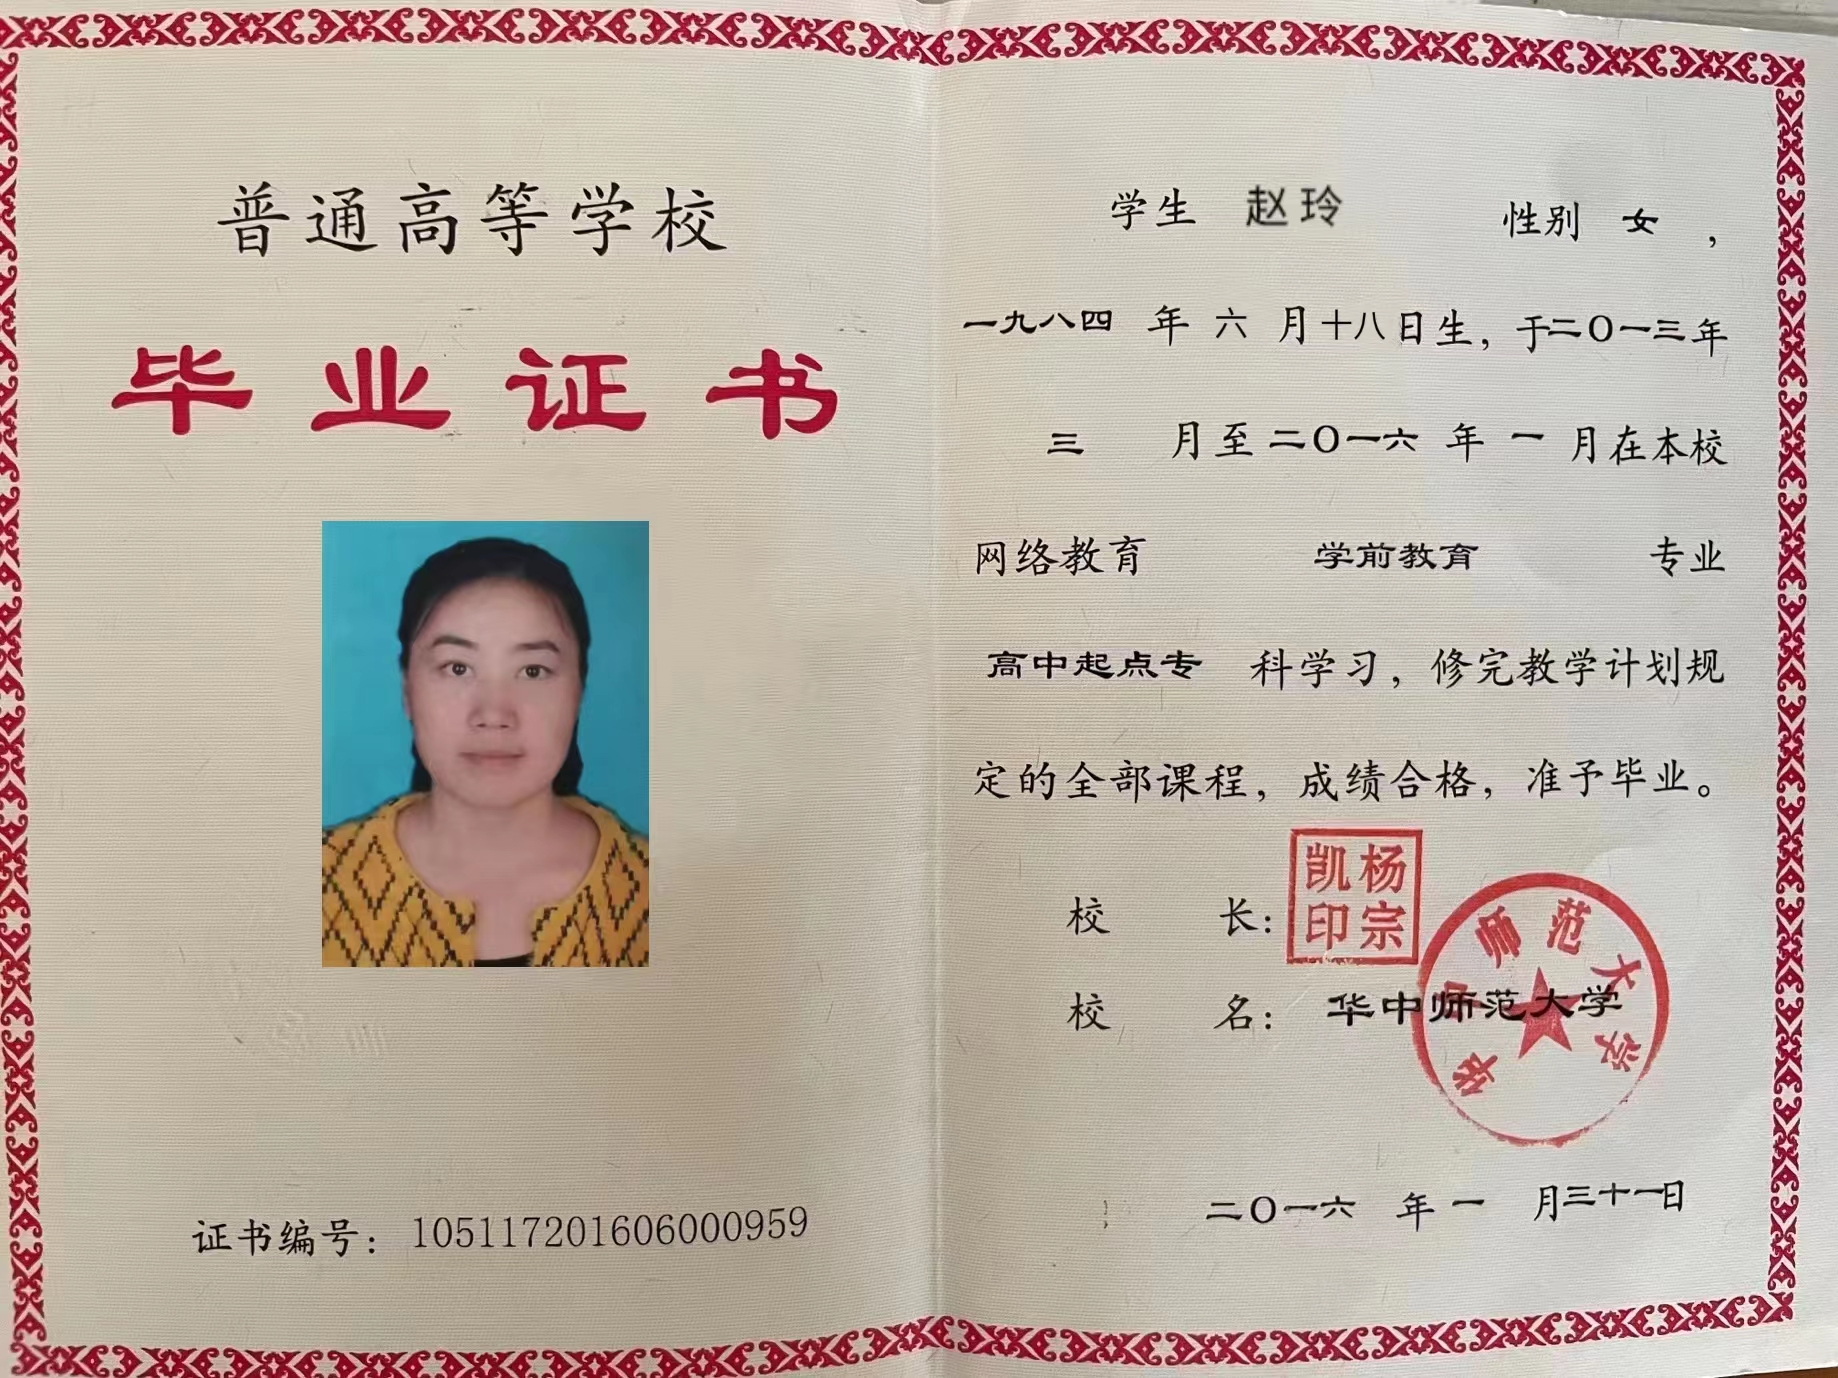 普通高等学校
毕业证书
证书编号：105117201606000959
学生 赵玲 性别 女，
一九八四 年 六 月十八日生，于二〇一三年
三 月至二〇一六 年 一 月在本校
网络教育 学前教育 专业
高中起点专 科学习，修完教学计划规
定的全部课程，成绩合格，准予毕业。
校 长：
杨宗凯印
校 名：华中师范大学
华中师范大学
二〇一六 年 一 月三十一日